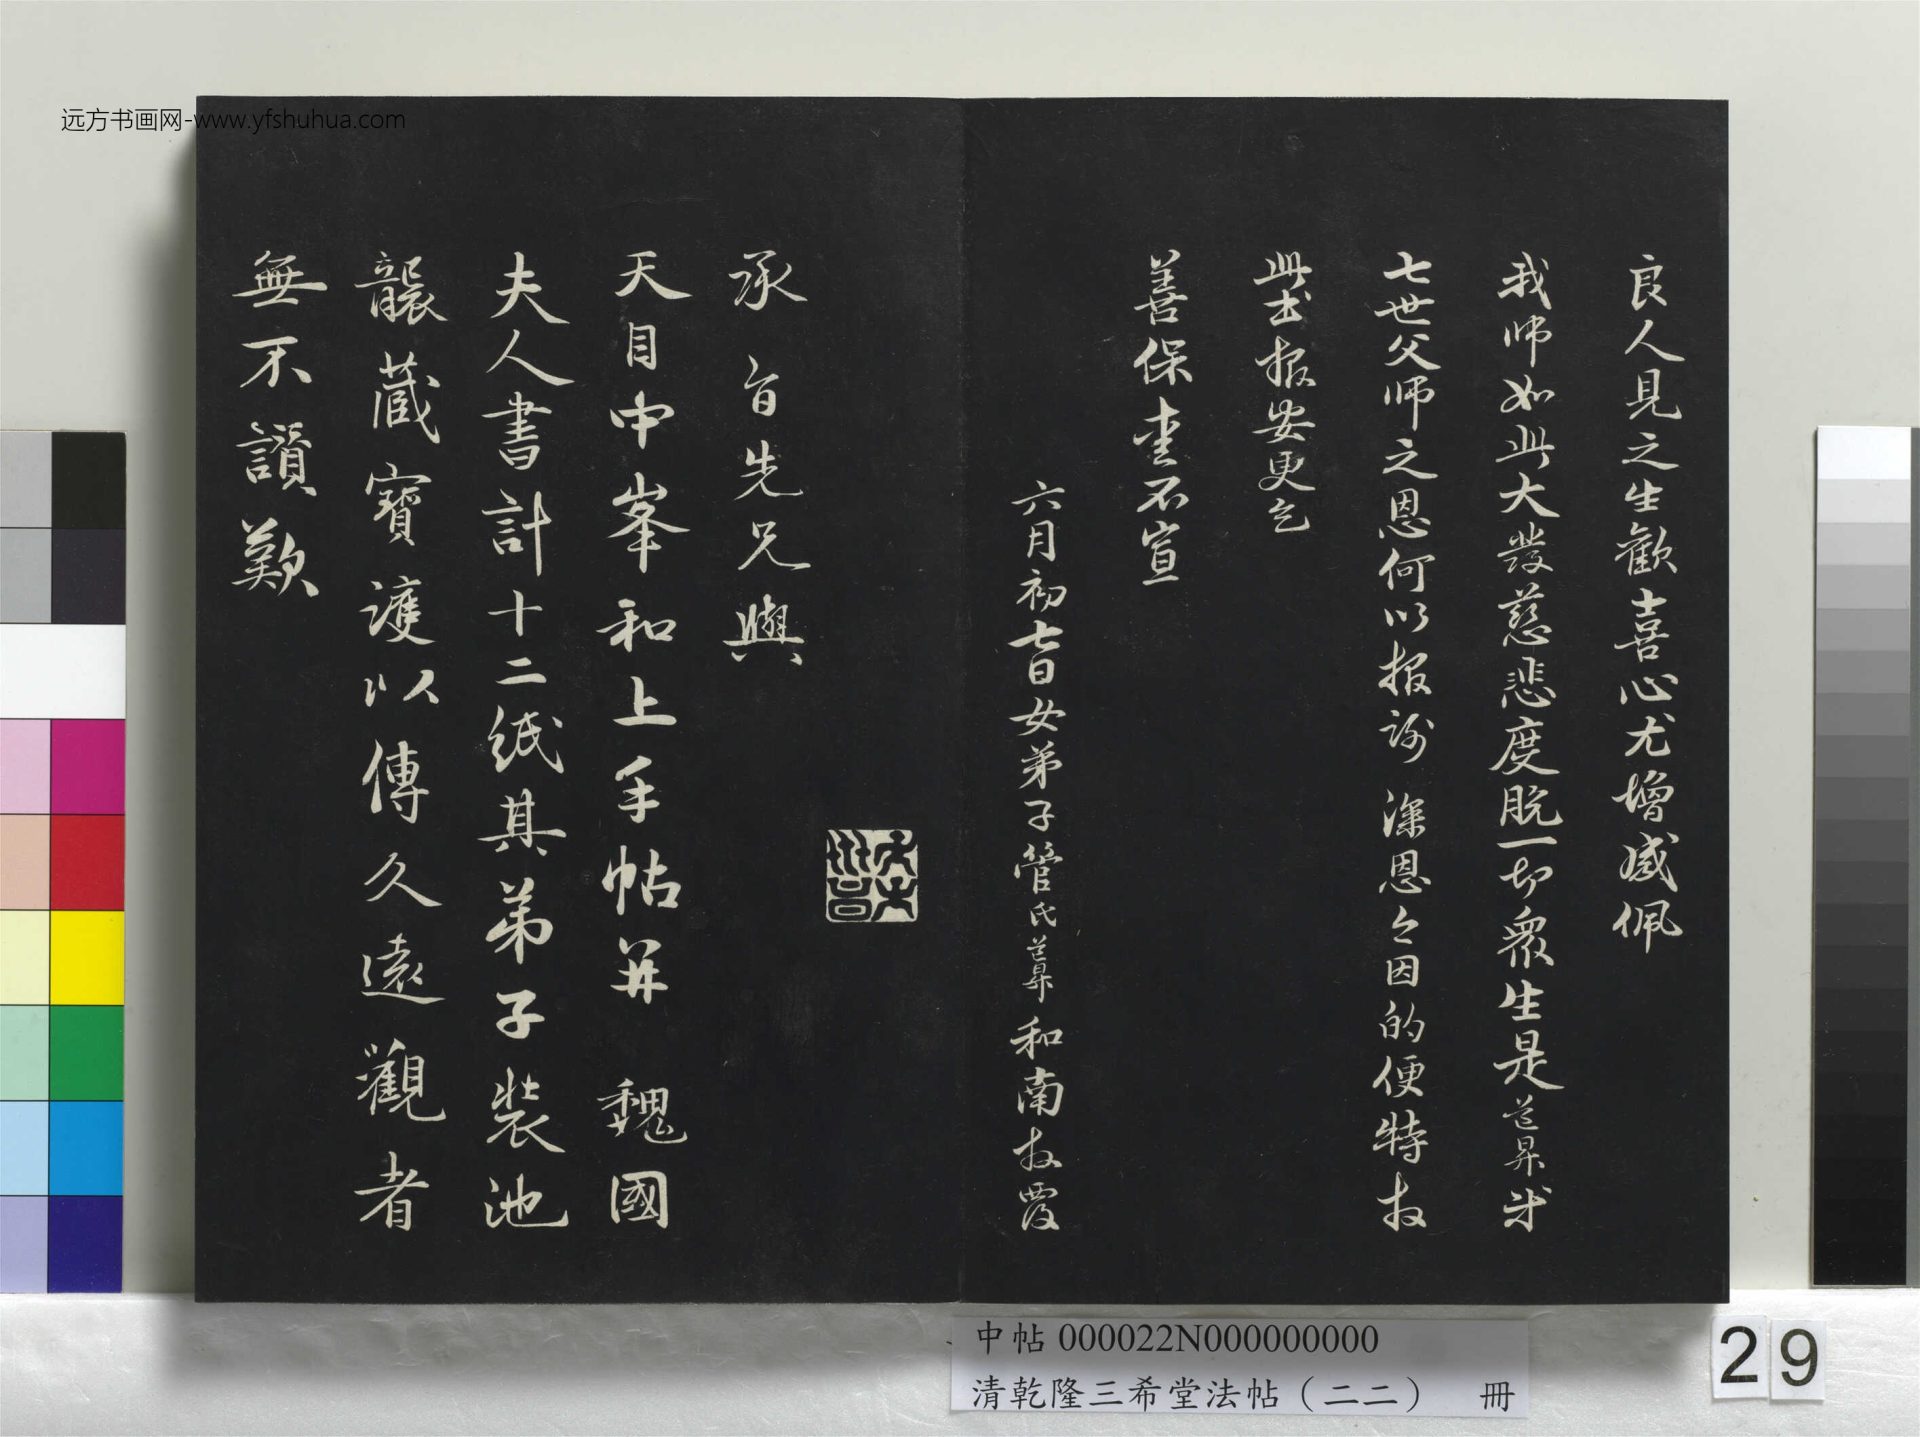 远方书画网-www.yfshuhua.com
良人見之生歡喜心尤增感佩
我師如此大發慈悲度脫一切衆生是道昇
七世父師之恩何以報謝深恩今因的便特拜
此書報安更乞
善保重不宣
六月初七日女弟子管氏道昇和南拜覆
承旨先兄與
天目中峯和上手帖并 魏國
夫人書計十二紙其弟子裝池
襲藏寶護以傳久遠觀者
無不讚歎
中帖 000022N000000000
清乾隆三希堂法帖（二二） 冊
29